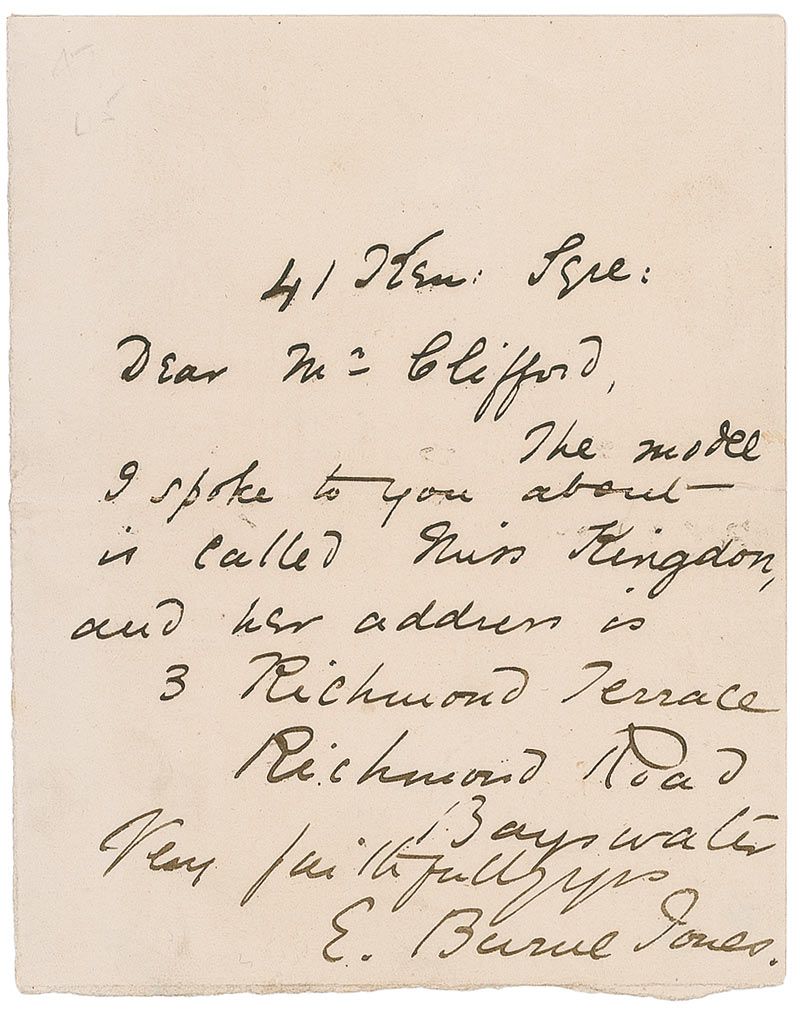 41 Ken: Sqre:
Dear Mr Clifford,
The model
I spoke to you about
is called Miss Kingdon,
and her address is
3 Richmond Terrace
Richmond Road
Bayswater
Very faithfully yrs
E. Burne Jones.